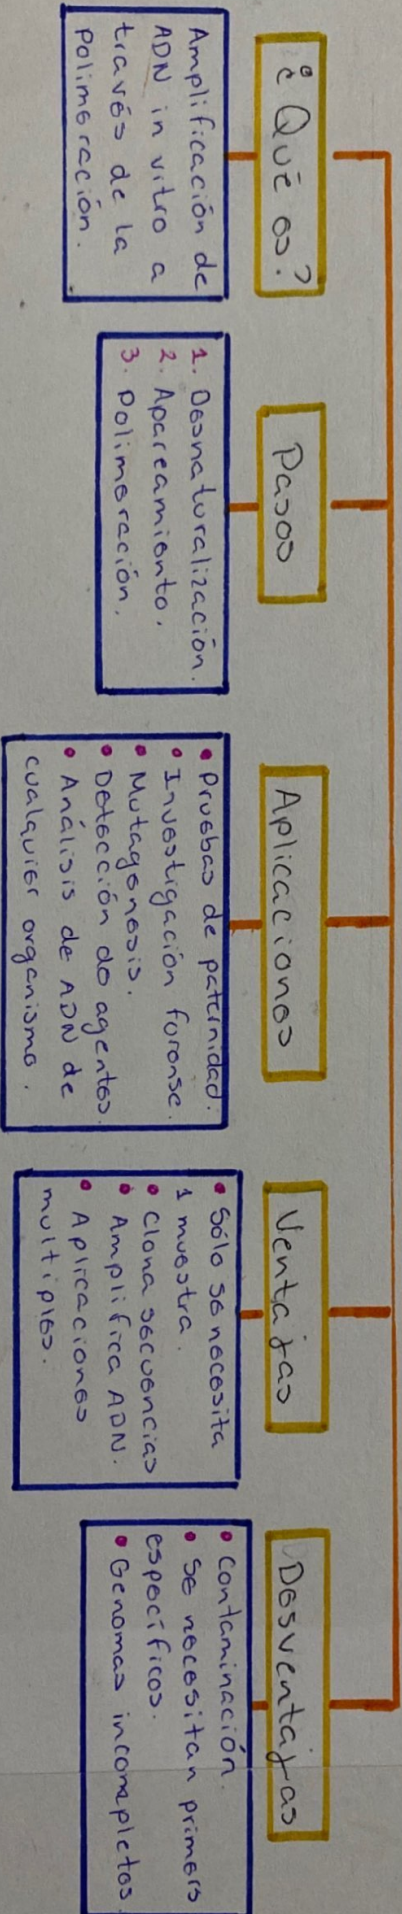 ¿Qué es?
Amplificación de
ADN in vitro a
través de la
polimeración.
Pasos
1. Desnaturalización.
2. Apareamiento.
3. Polimeración.
Aplicaciones
• Pruebas de paternidad.
• Investigación forense.
• Mutagenesis.
• Detección de agentes.
• Análisis de ADN de
cualquier organismo.
Ventajas
• Sólo se necesita
1 muestra.
• Clona secuencias
• Amplifica ADN.
• Aplicaciones
multiples.
Desventajas
• Contaminación.
• Se necesitan primers
específicos.
• Genomas incompletos.